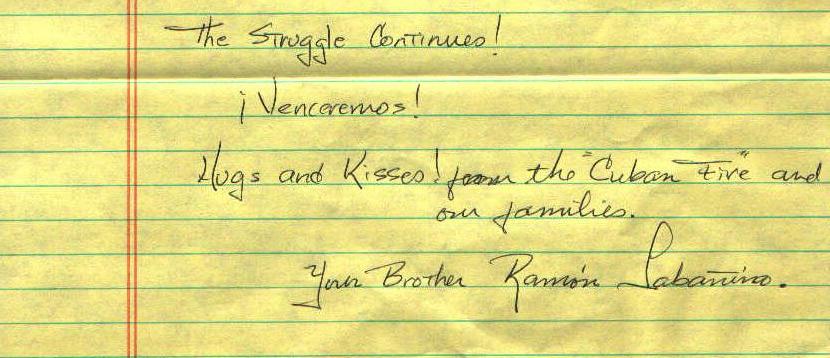 The Struggle Continues!
¡Venceremos!
Hugs and Kisses! from the "Cuban Five" and
our families.
Your Brother Ramón Labañino.